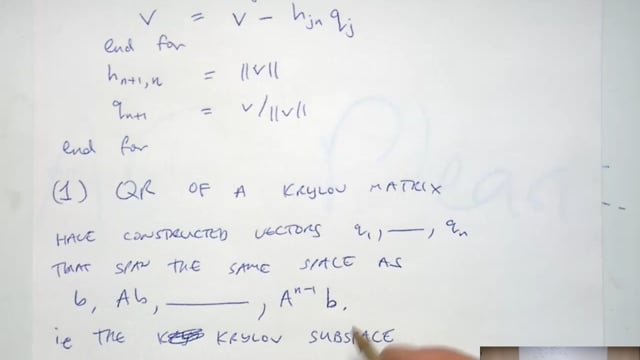 v = v - h_{jn} q_j
end for
h_{n+1,n} = ||v||
q_{n+1} = v/||v||
end for
(1) QR OF A KRYLOV MATRIX
HAVE CONSTRUCTED VECTORS q_1, —, q_n
THAT SPAN THE SAME SPACE AS
b, Ab, ———, A^{n-1} b.
ie THE KRYLOV SUBSPACE